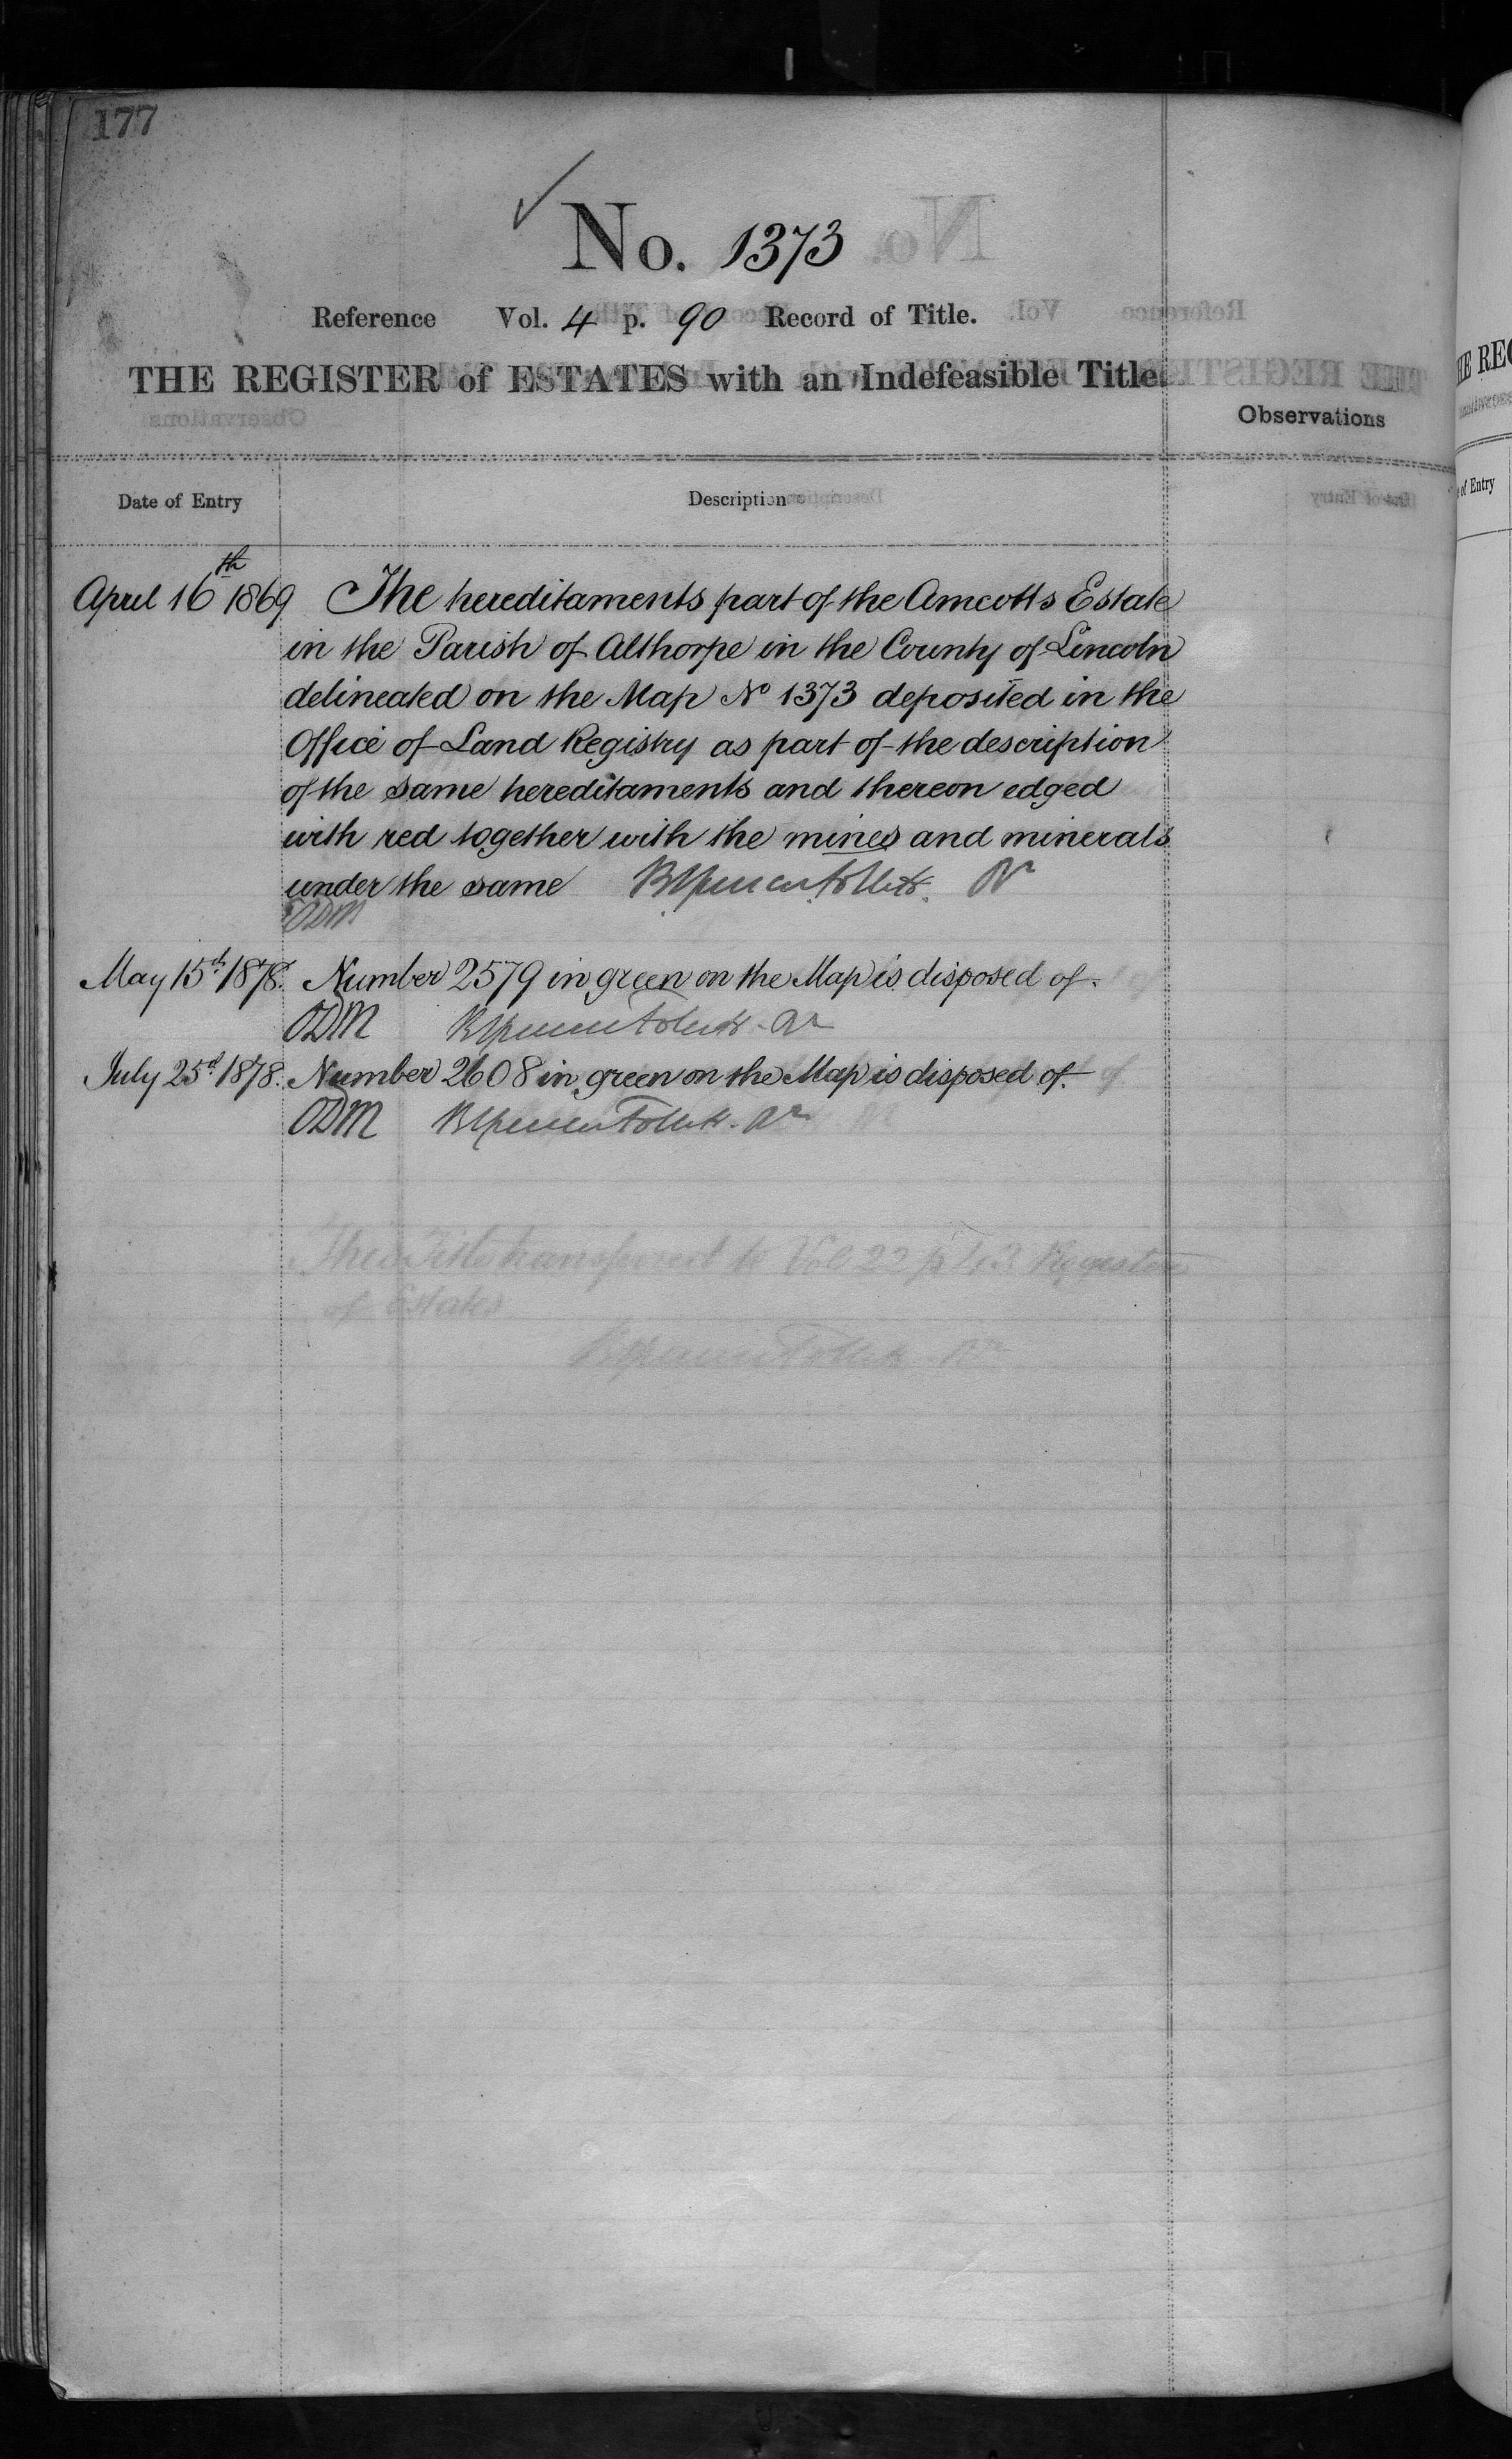 177
No. 1373
Reference Vol. 4 p. 90 Record of Title.
THE REGISTER of ESTATES with an Indefeasible Title.
Observations
Date of Entry
Description
April 16th 1869 The hereditaments part of the Amcotts Estate
in the Parish of Althorpe in the County of Lincoln
delineated on the Map No 1373 deposited in the
Office of Land Registry as part of the description
of the same hereditaments and thereon edged
with red together with the mines and minerals
under the same
ODM
May 15th 1878. Number 2579 in green on the Map is disposed of.
ODM
July 25th 1878. Number 2608 in green on the Map is disposed of.
ODM
of Estates
of Entry